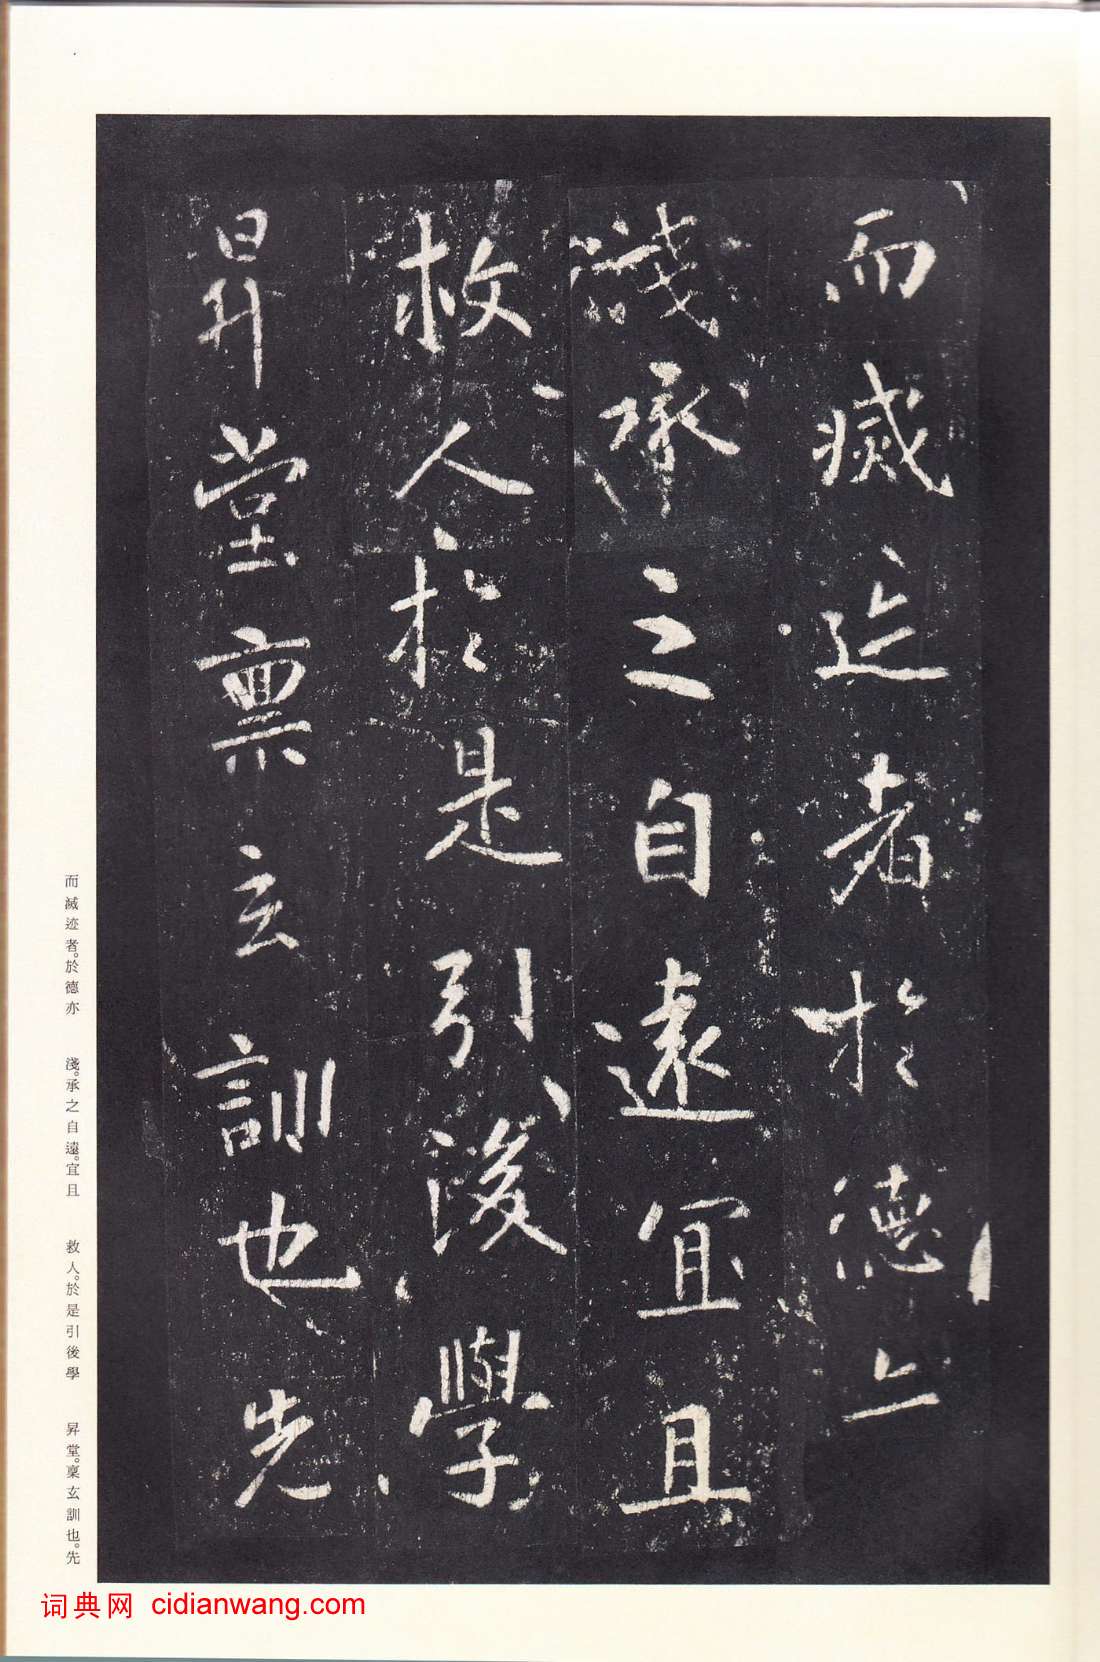 而滅迹者於德亦
淺承之自遠宜且
救人於是引後學
昇堂稟玄訓也先
而滅迹者。於德亦　淺。承之自遠。宜且　救人。於是引後學　昇堂。稟玄訓也。先
词典网 cidianwang.com